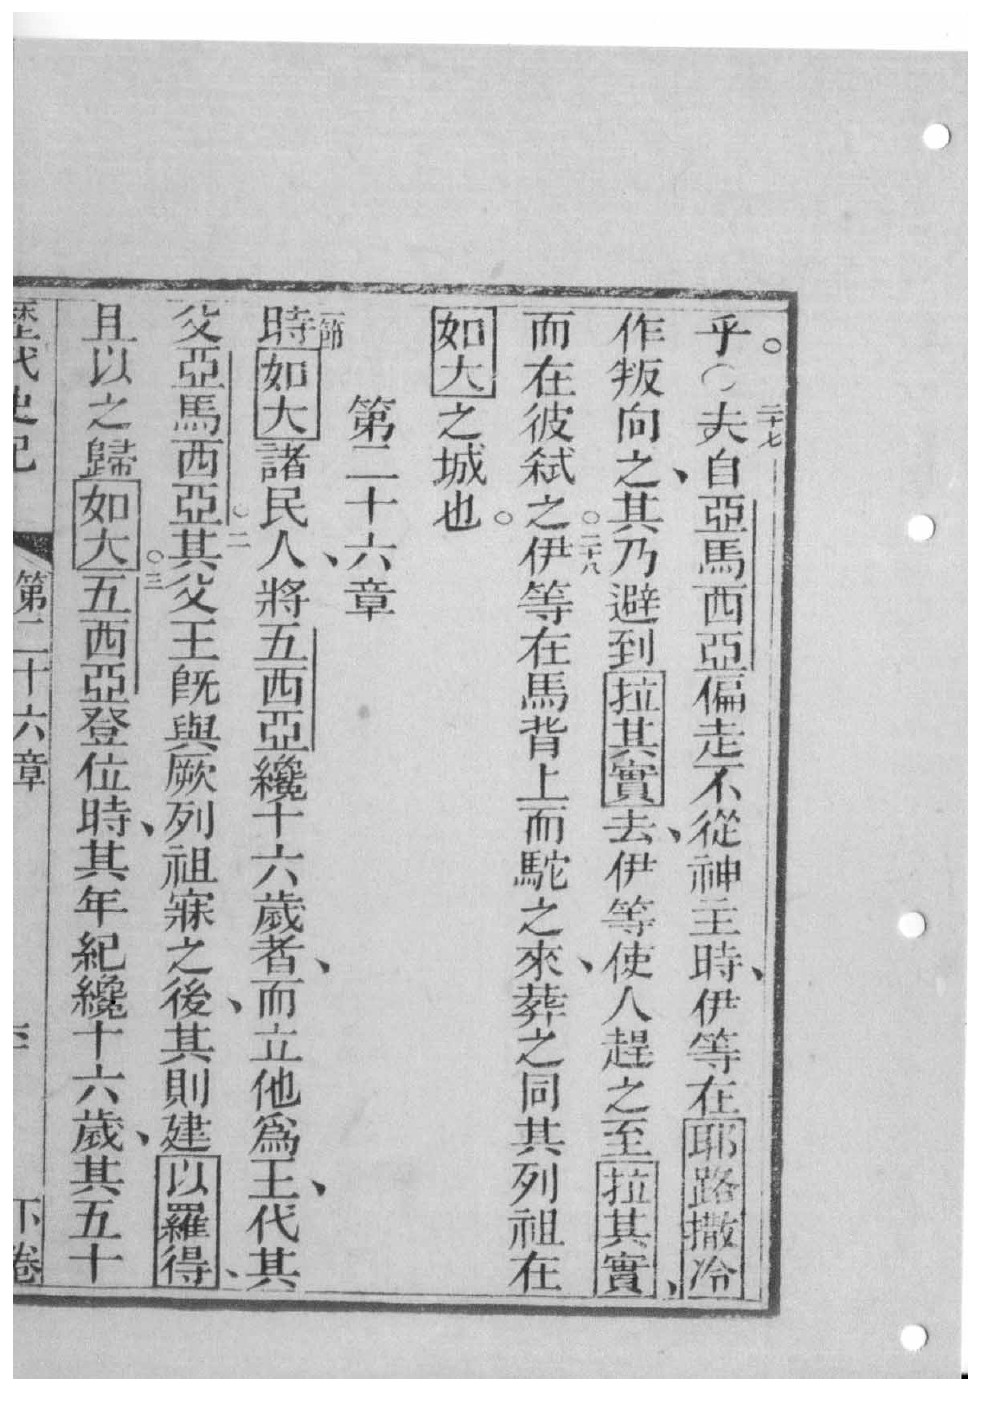 乎○二十七夫自亞馬西亞偏走不從神主時、伊等在耶路撒冷
作叛向之、其乃避到拉其實去、伊等使人趕之至拉其實、
而在彼弒之○二十八伊等在馬背上而駝之來、葬之同其列祖在
如大之城也○
第二十六章
一節時如大諸民人、將五西亞纔十六歲者、而立他爲王、代其
父亞馬西亞○二其父王旣與厥列祖寐之後、其則建以羅得、
且以之歸如大○三五西亞登位時、其年紀纔十六歲、其五十
歷代史記 第二十六章 下卷